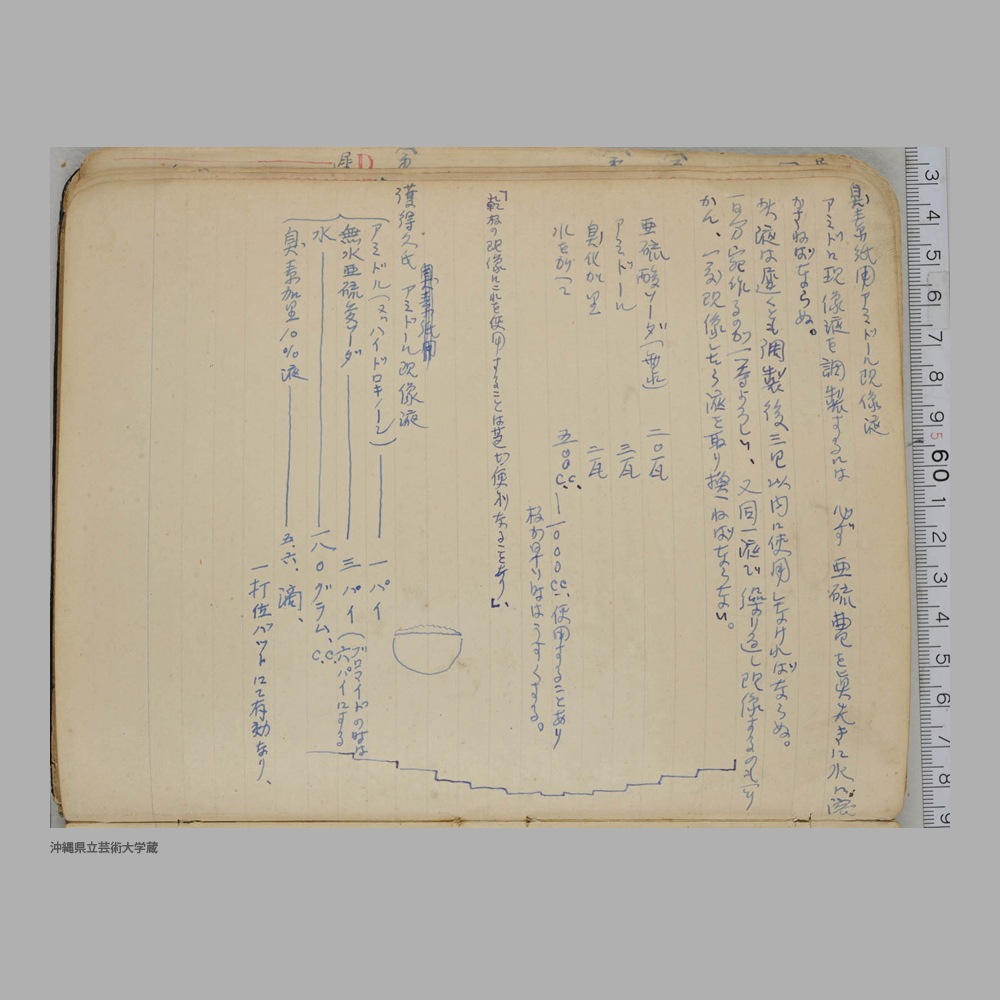 臭素紙用アミドール現像液
アミドロ現像液を調製するには 必ず 亜硫曹を真先きに水に溶
かさねばならぬ。
此液は遅くとも調製後三日以内に使用しなければならぬ。
自分宛作るのが一番よろしい、又同一液で繰り返し現像するのもい
かん、一度現像したら液を取り換へねばならない。
亜硫酸ソーダ(無水) 二〇瓦
アミドール 三瓦
臭化加里 二瓦
水を加へて 五〇〇c.c.—一〇〇〇cc.使用することあり
板が早い時はうすくする。
「乾板の現像にこれを使用することは甚が便利なることあり」、
臭素紙用
獲得久氏 アミドール現像液
アミドル(又ハハイドロキノーン) 一パイ
無水亜硫曹ーダ 三パイ(ブロマイドの時は
六パイにする
水 一八〇グラム、c.c.
臭素加里10%液 五.六.滴、
一打位バットにて有効なり、
沖縄県立芸術大学蔵
D
3 4 5 6 7 8 9 5 60 1 2 3 4 5 6 7 8 9